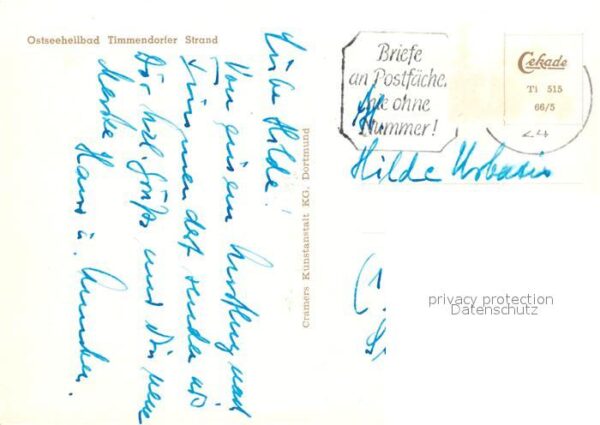 Ostseeheilbad Timmendorfer Strand
Liebe Hilde!
Von einem Ausflug nach
Timmendorf senden wir
Dir hzl. Grüße und
Hans u.
Cramers Kunstanstalt KG. Dortmund
Briefe
an Postfäche,
nie ohne
Nummer!
Cekade
Ti 515
66/5
24
Hilde
privacy protection
Datenschutz